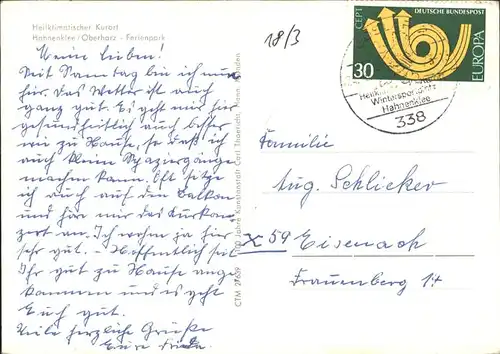 Heilklimatischer Kurort
Hahnenklee/Oberharz - Ferienpark
18/3
Meine Lieben!
Seit Samstag bin ich nun
hier. Das Wetter ist auch
ganz gut. Es geht mir hier
gesundheitlich auch besser
wie zu Hause, so daß ich
auch kleine Spaziergänge
machen kann. Oft sitze
ich auch auf dem Balkon
und höre mir das Kurkon-
zert an. Ich wohne ja hier
sehr gut. - Hoffentlich seid
Ihr gut zu Hause ange-
kommen und es geht
Euch gut.
Viele herzliche Grüße
Eure
CTM 2769
100 Jahre Kunstanstalt Carl Thoericht, Hann. Münden
CEPT
DEUTSCHE BUNDESPOST
30
EUROPA
Wintersportplatz
Hahnenklee
338
Familie
Aug. Schlicker
X 59 Eisenach
Frauenberg 14